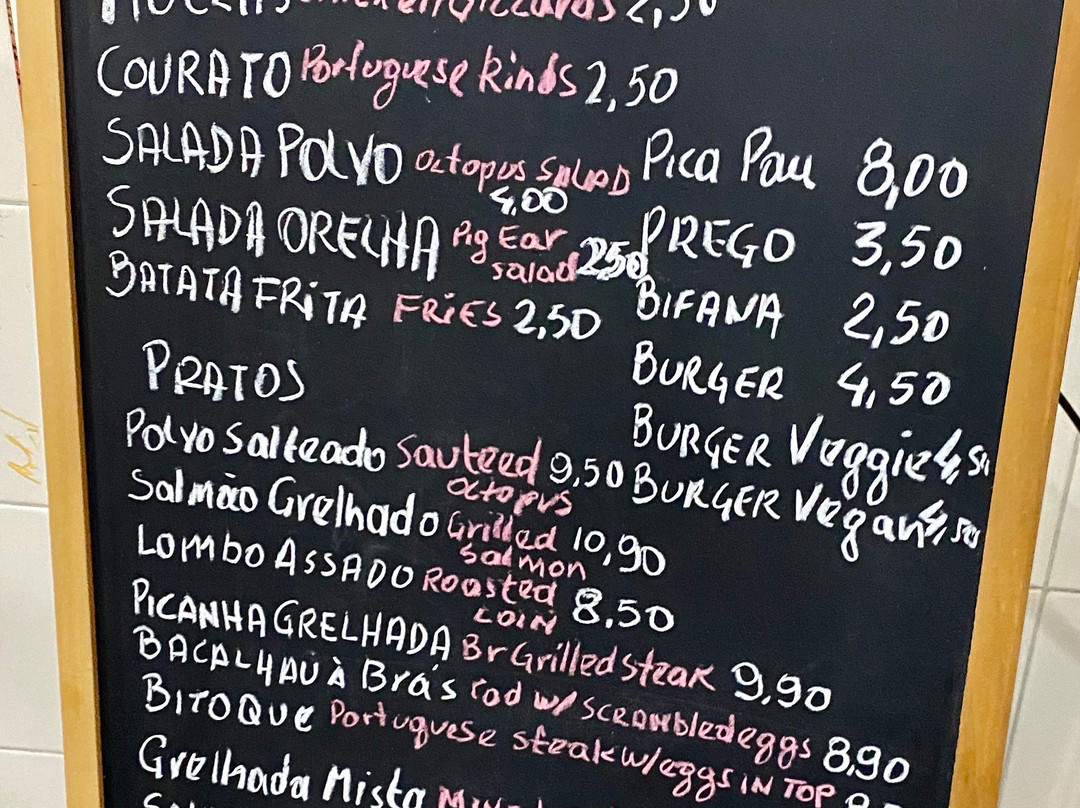 2,50
COURATO Portuguese kinds 2,50
SALADA POLVO octopus SALAD
4,00
SALADA ORELHA Pig Ear
salad 2,50
BATATA FRITA FRIES 2,50
Pica Pau 8,00
PREGO 3,50
BIFANA 2,50
BURGER 4,50
BURGER Veggie 4,50
BURGER Vegan 4,50
PRATOS
Polvo Salteado Sauteed 9,50
octopus
Salmão Grelhado Grilled 10,90
salmon
LOMBO ASSADO Roasted 8.50
LOIN
PICANHA GRELHADA Br Grilled steak 9,90
BACALHAU À Brás Cod w/ SCRAMbled eggs 8,90
BITOQUE Portuguese steak w/ eggs IN TOP
Grelhada Mista